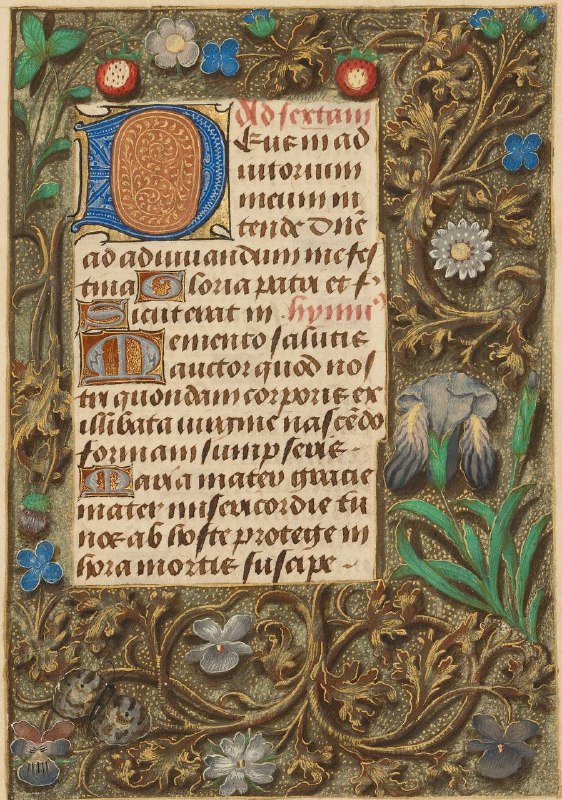 Ad sextam
Deus in ad
iutorium
meum in
tende Dñe
ad adiuuandum me fes
tina Gloria patri et f.
Sicut erat in hymnꝰ
Memento salutis
auctor quod nos
tri quondam corporis ex
illibata uirgine nascēdo
formam sumpseris.
Maria mater gracie
mater misericordie tu
nos ab hoste protege in
hora mortis suscipe.